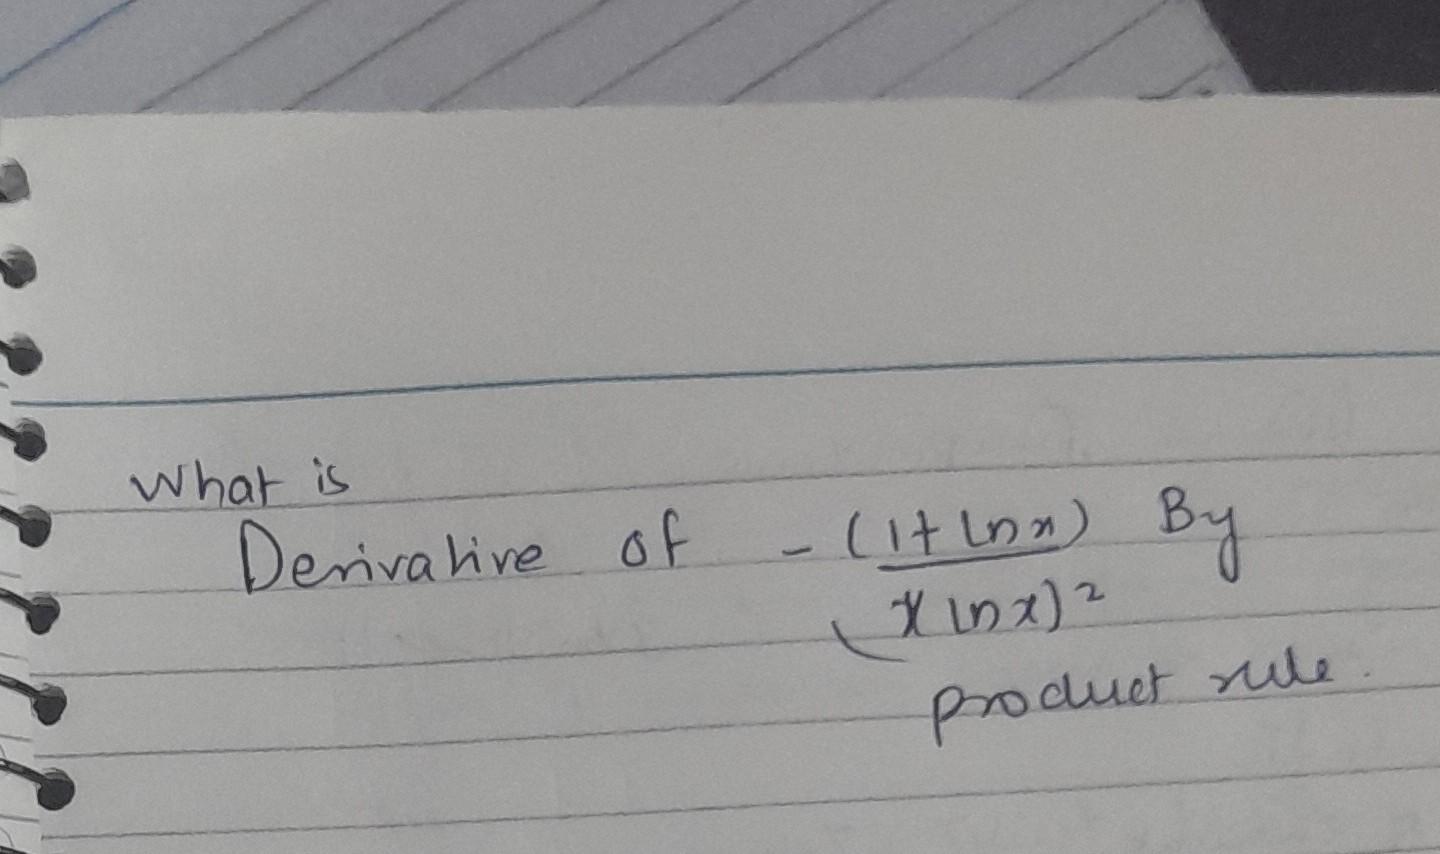 What is
Derivative of - (1+ ln x) By
(x ln x)²
product rule.